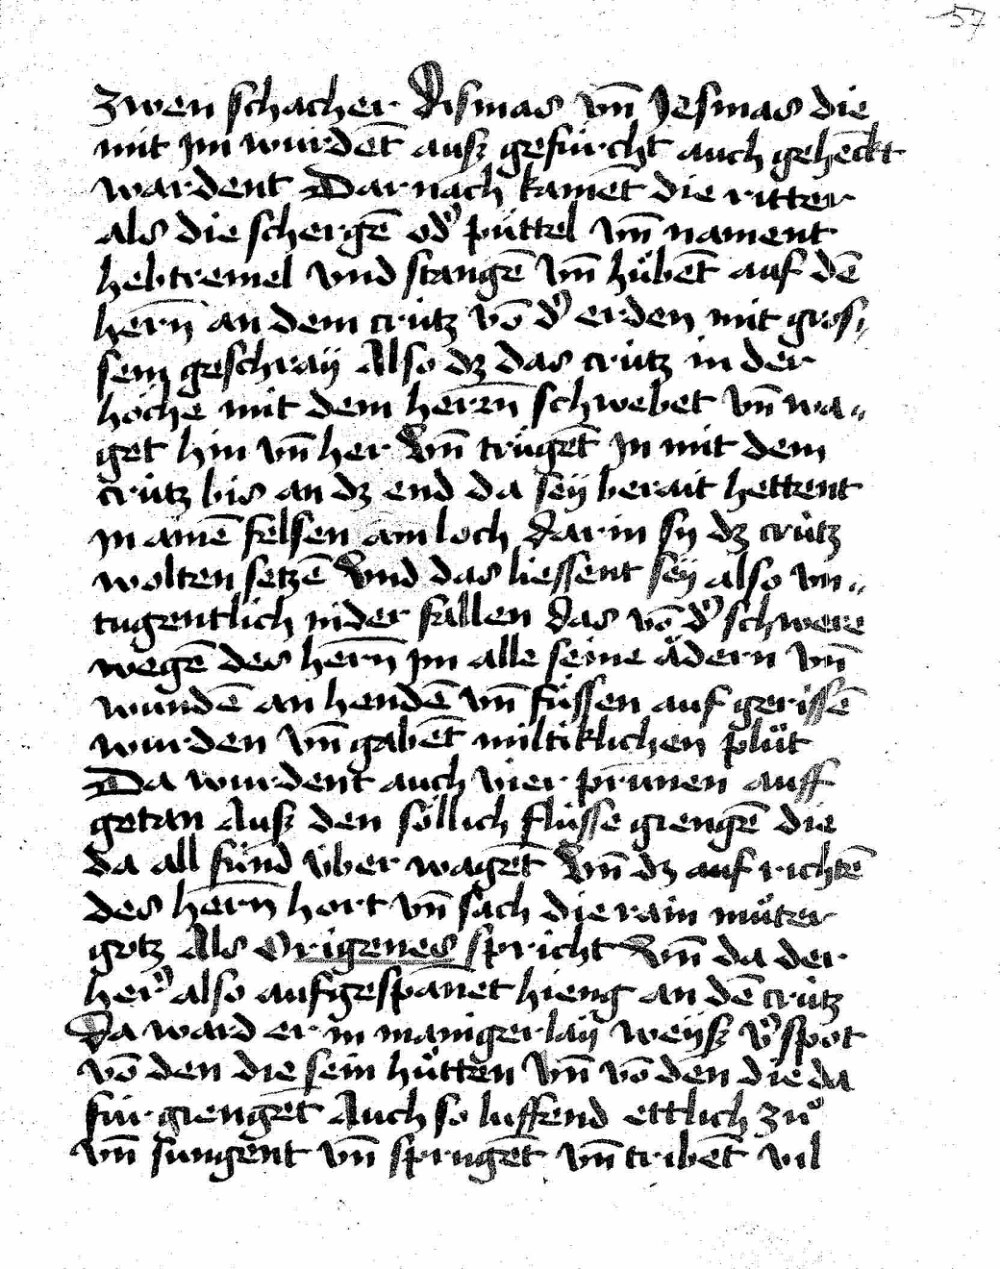 57
zwen schacher Dismas vn̄ Jesmas die
mit jm wurdēt ausz gefürcht auch gehēckt
wardent Darnach kamēt die ritter
als die schergē od' püttel vn̄ nament
hebtremel vnd stangē vn̄ hůbēt auf dē
hern̄ an dem crütz vō d' erden mit gros„
sem geschraÿ Also dz das crütz in der
höche mit dem herrn̄ schwebet vn̄ wa„
get hin vn̄ her Vn̄ trügēt jn mit dem
crütz bis an dz end da seÿ berait hettent
jn ainē felsen ain loch darin sy dz crütz
wolten setzē Vnd das liessent seÿ also vn„
tugentlich nider fallen das vō d' schwere
wegē des hern̄ jm alle seine ådern vn̄
wundē an hendē vn̄ füssen auf gerissē
wurden vn̄ gabēt miltiklichen plůt
Da wurdent auch vier prunen auff
getan Ausz den söllich flüsse giengē die
da all sünd über wagēt Vn̄ dz auf richtē
des hern̄ hort vn̄ sach die rain můter
gotz Als Origenes spricht Vn̄ da der
her' also aufgespānet hieng an dē crütz
Da ward er in manigerlaÿ weÿsz v'spot
vō den die sein hůtten vn̄ vō den die da
für giengēt Auch so luffend ettlich zů
vn̄ sungent vn̄ sprugēt vn̄ tribēt vil